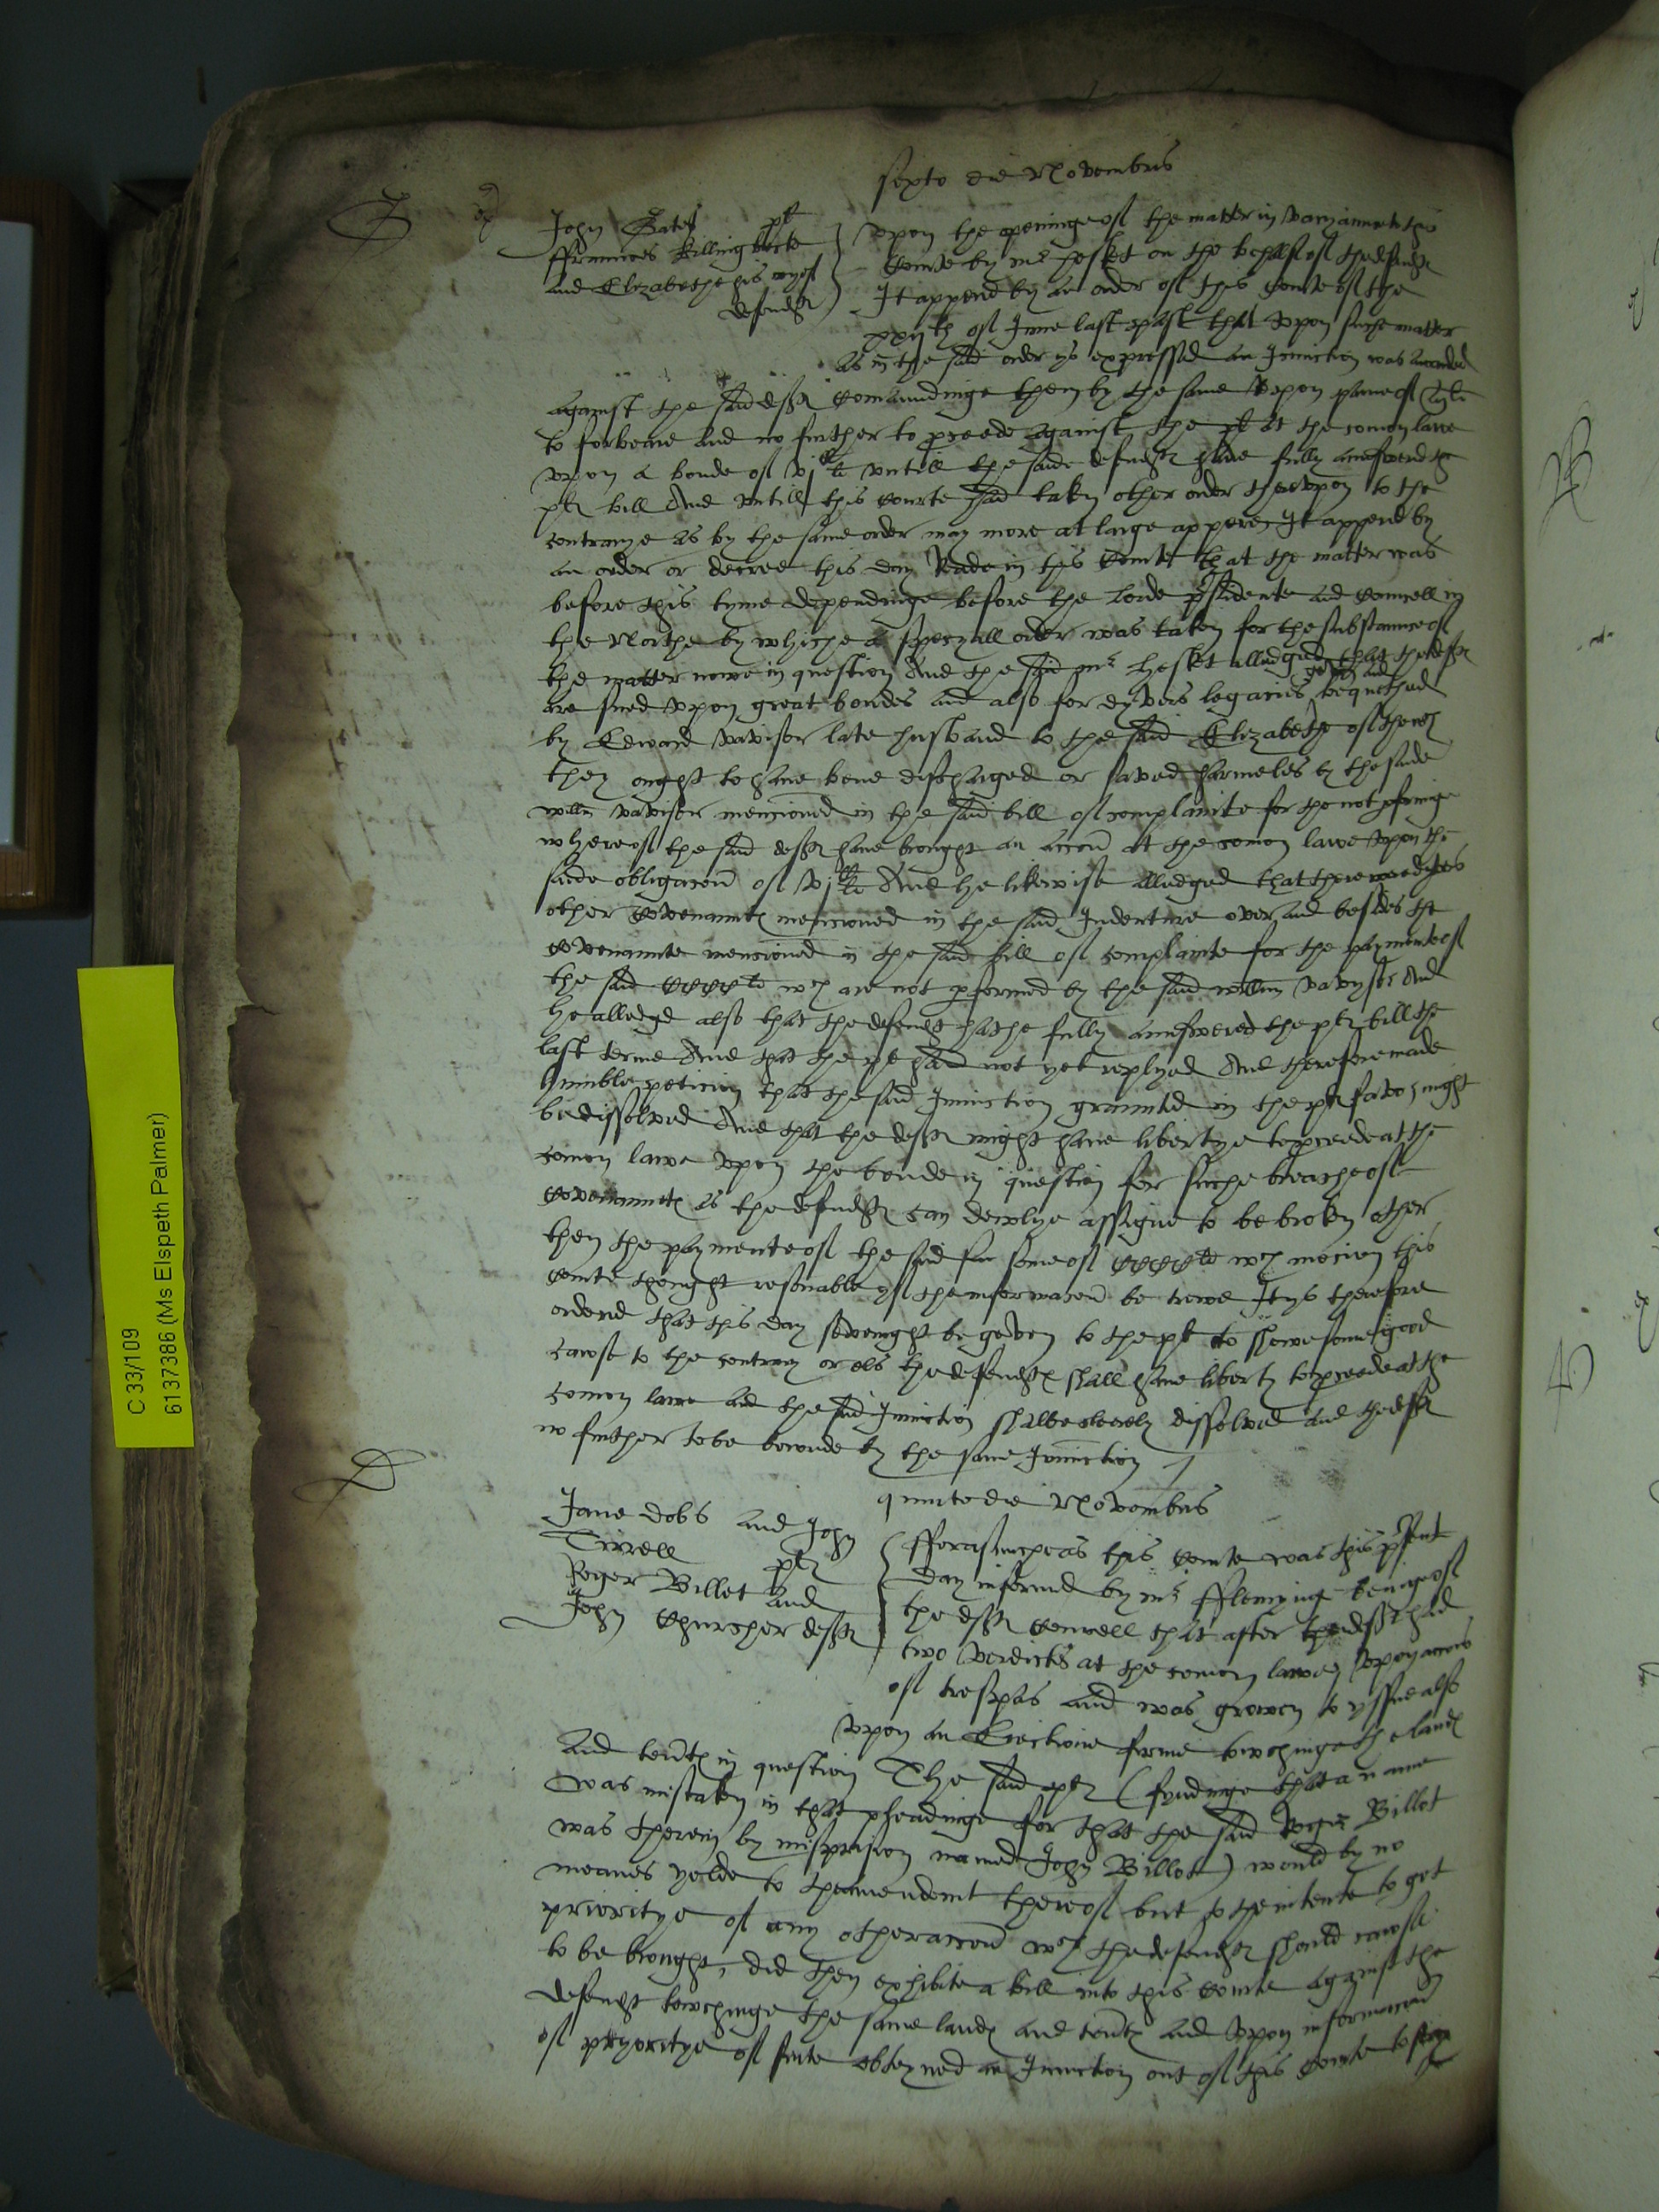 sexto die Novembris
John Gates plt
ffraunces Killingbecke
and Elizabethe his wyef
defendtes
Upon the openinge of the matter in varyaunce to this
Courte by mr hesket on the behalf of the defendtes
It appered by an order of this Courte of the
xxijth of June last past that upon suche matter
as in the said order ys expressed an Iniunction was awarded
against the said deftes Comaundinge them by the same upon paine of
to forbeare and no further to procede against the plt at the comon lawe
upon a bonde of vjC li untill the saide defendtes have fully aunswered the
pltes bill And untill this Courte had taken other order therupon to the
contrarye as by the same order may more at large appere, It appered by
an order or decree this day Reade in this Courte that the matter was
before this tyme dependinge before the lorde president and Counsell in
the Northe by whiche a specyall order was taken for the substaunce of
the matter nowe in question And the said mr hesket alledged that the deftes
are sued upon great bondes and also for dyvers legacies geven and bequethed
by Edward vavisor late husband to the said Elizabethe of the wch
they ought to have bene discharged or saved harmeles by the saide
willm vavisor mencioned in the said bill of complainte for the not pfominge
whereof the said deftes have brought an accion at the comon lawe upon the
saide obligacion of vjC li And he likewise alledged that there were dyvers
other Covenauntes mencioned in the said Indenture over and besides the
Covenaunte mencioned in the said bill of complainte for the paymente of
the said CCCC li wch are not pformed by the said willm vavysor And
he alledged also that the defendt hathe fully aunswered the pltes bill the
last terme And that the plt had not yet replyed And therefore made
humble peticion that the said Iniunction graunted in the pltes favor might
be dissolved And that the deftes might have libertye to procede at the
comon lawe upon the bonde in question for suche breache of
Covenauntes as the defendtes can dewlye assigne to be broken other
then the paymente of the said somme of CCCC li wch mocion this
Courte thought resonable yf the informacion be trewe It ys therefore
ordered that this day sevenight be geven to the plt to shewe some good
cawse to the contrary or els the defendtes shall have liberty to procede at the
comon lawe and the said Iniunction shalbe clerely dissolved and the deftes
no further to be bounde by the same Iniunction
quinto die Novembris
Jane Dobs and John
Tirrell pltes
Roger Billet and
John Churcher deftes
fforasmuche as this Courte was this present
day informed by mr fflemynge beinge of
the deftes Counsell that after the deft had
two verdictes at the comon lawe upon accions
of trespas and was growen to yssue also
upon an Eiectione firme towchinge the landes
and tentes in question The said pltes (fyndinge that a name
was mistaken in that pleadinge for that the said Roger Billet
was therein by misprision named John Billet) would by no
meanes yelde to thamendemt thereof but to the intente to get
prioritye of any other accion wch the defendtes should cawse
to be brought, did then exhibite a bill into this Courte against the
defendt towchinge the same landes and tentes and upon informacion
of pryoritye of suite obteyned an Iniunction out of this Courte to stey
C 33/109
6137386 (Ms Elspeth Palmer)